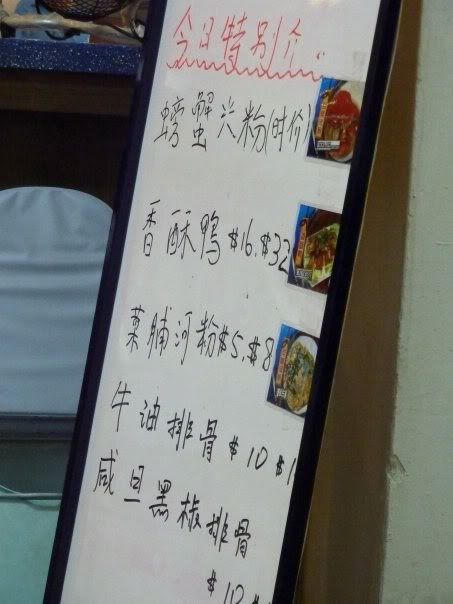 今日特别介
螃蟹米粉(时价)
香酥鸭$16.$32
菜脯河粉$5.$8
牛油排骨$10 $1
咸旦黑椒排骨
$10